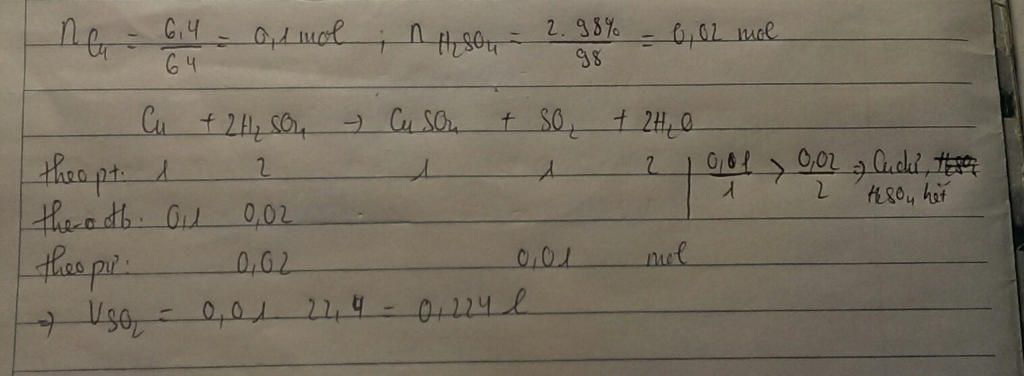 n Cu = 6,4/64 = 0,1 mol ; n H2SO4 = 2. 98%/98 = 0,02 mol
Cu + 2H2SO4 → CuSO4 + SO2 + 2H2O
theo pt: 1 2 1 1 2 | 0,01/1 > 0,02/2 ⇒ Cu dư,
H2SO4 hết
theo đb: 0,1 0,02
theo pư: 0,02 0,01 mol
⇒ VSO2 = 0,01 . 22,4 = 0,224 l